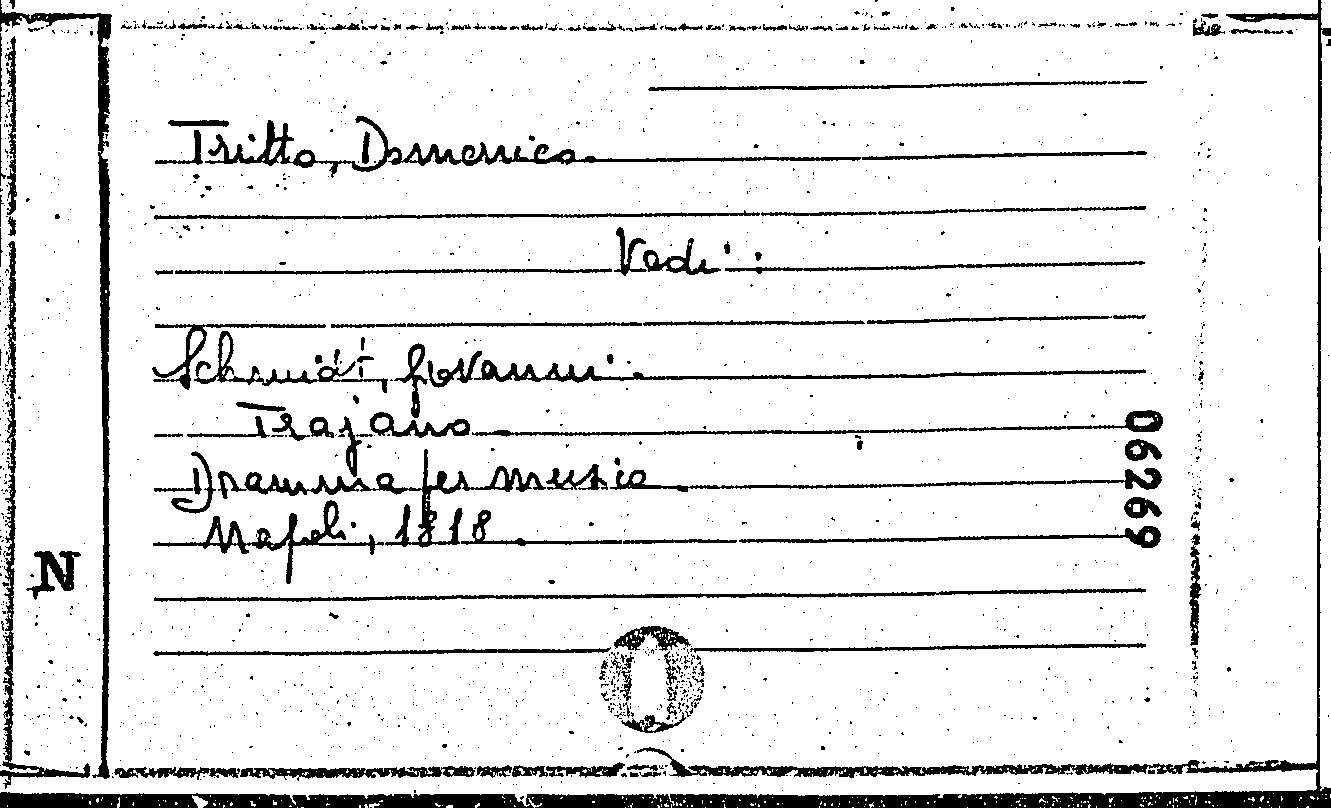 Tritto, Domenico.
Vedi :
Schmidt, Giovanni.
Trajano.
Dramma per musica.
Napoli, 1818.
06269
N